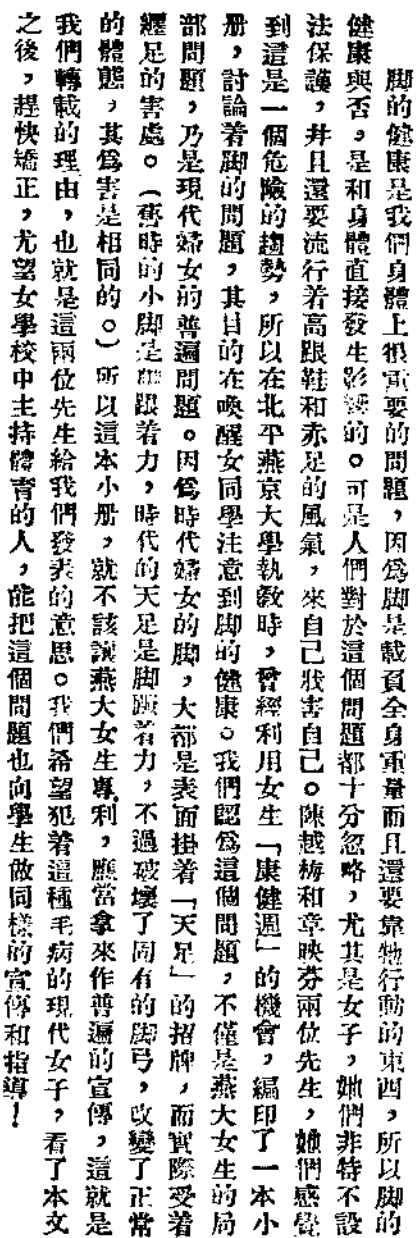 脚的健康是我們身體上很重要的問題，因爲脚是載負全身重量而且還要靠牠行動的東西，所以脚的
健康與否，是和身體直接發生影響的。可是人們對於這個問題都十分忽略，尤其是女子，她們非特不設
法保護，幷且還要流行着高跟鞋和赤足的風氣，來自己戕害自己。陳越梅和章映芬兩位先生，她們感覺
到這是一個危險的趨勢，所以在北平燕京大學執敎時，曾經利用女生「康健週」的機會，編印了一本小
册，討論着脚的問題，其目的在喚醒女同學注意到脚的健康。我們認爲這個問題，不僅是燕大女生的局
部問題，乃是現代婦女的普遍問題。因爲時代婦女的脚，大都是表面掛着「天足」的招牌，而實際受着
纒足的害處。（舊時的小脚是脚跟着力，時代的天足是脚蹠着力，不過破壞了固有的脚弓，改變了正常
的體態，其爲害是相同的。）所以這本小册，就不該讓燕大女生專利，應當拿來作普遍的宣傳，這就是
我們轉載的理由，也就是這兩位先生給我們發表的意思。我們希望犯着這種毛病的現代女子，看了本文
之後，趕快矯正，尤望女學校中主持體育的人，能把這個問題也向學生做同樣的宣傳和指導！